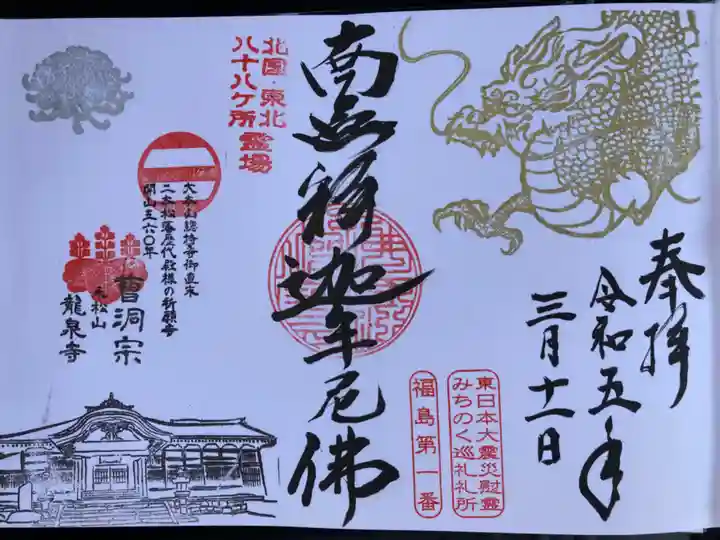 奉拝
令和五年
三月十一日
東日本大震災慰霊
みちのく巡礼札所
福島第一番
南無釈迦牟尼佛
北国・東北
八十八ケ所
霊場
大本山總持寺御直末
二本松藩歴代殿様の祈願寺
開山五六〇年
曹洞宗
永松山
龍泉寺